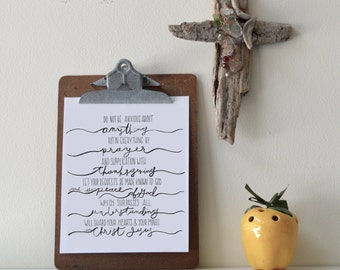 DO NOT BE ANXIOUS ABOUT
anything
BUT IN EVERYTHING BY
prayer
AND SUPPLICATION WITH
thanksgiving
LET YOUR REQUESTS BE MADE KNOWN TO GOD
and the peace of God
WHICH SURPASSES ALL
understanding
WILL GUARD YOUR HEARTS & YOUR MINDS
in Christ Jesus